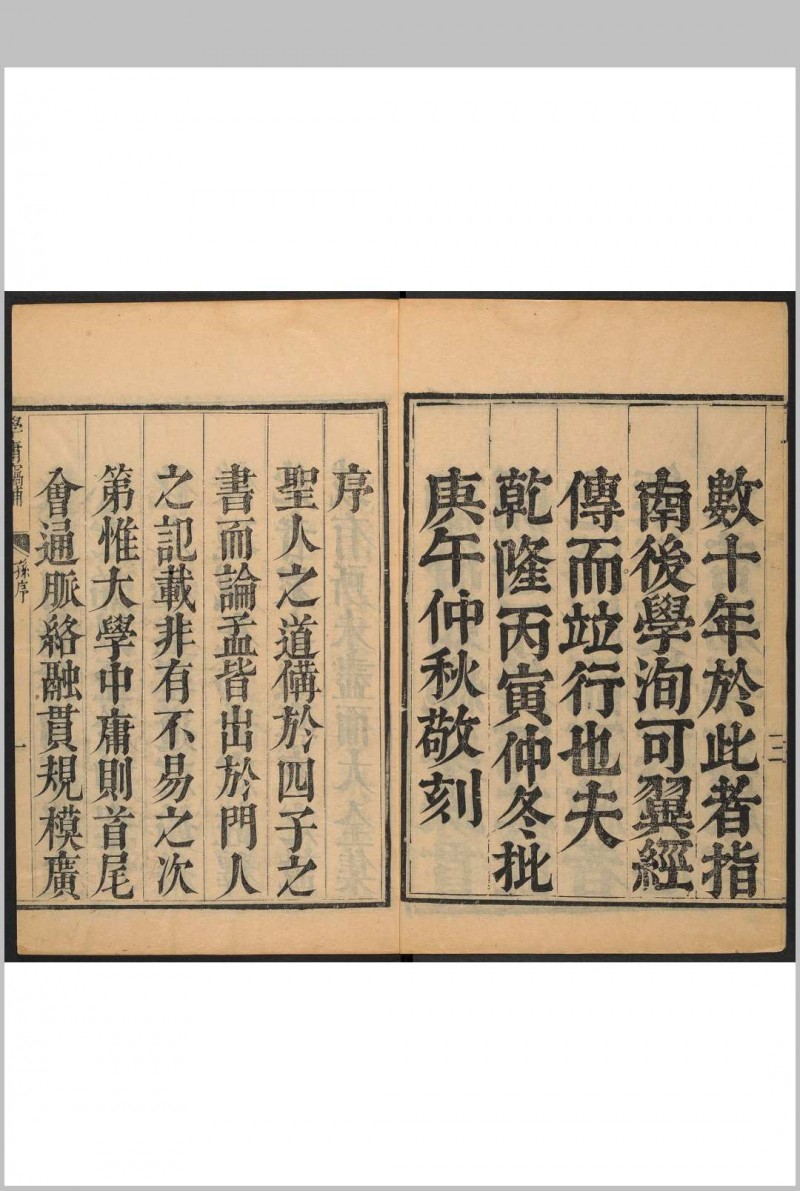 數十年於此者指
南後學洵可翼經
傳而竝行也夫
乾隆丙寅仲冬批
庚午仲秋敬刻
三
序
聖人之道備於四子之
書而論孟皆出於門人
之記載非有不易之次
第惟大學中庸則首尾
會通脈絡融貫規模廣
學庸
孫序
一